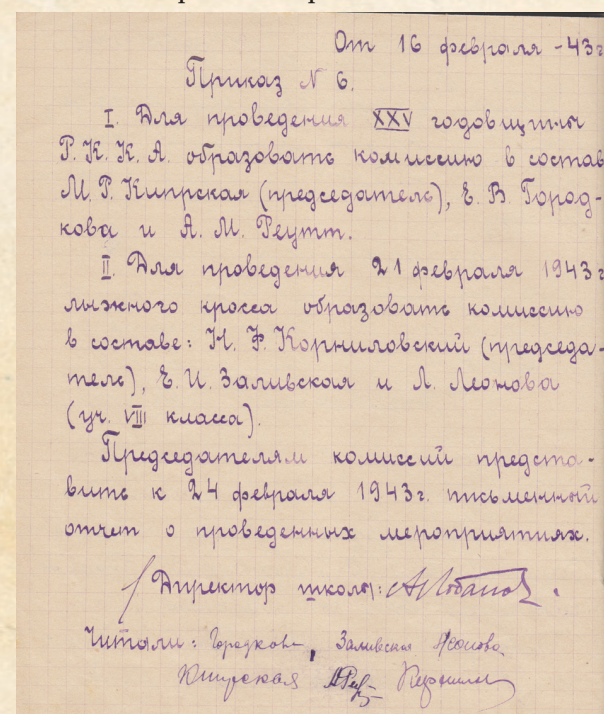 От 16 февраля -43г
Приказ № 6.
I. Для проведения XXV годовщины
Р.К.К.А. образовать комиссию в состав
М.Р. Кипрская (председатель), Е.В. Город-
кова и А.М. Реутт.
II. Для проведения 21 февраля 1943г
лыжного кросса образовать комиссию
в составе: Н.Ф. Корниловский (председа-
тель), Е.И. Заливская и Л. Леонова
(уч. VIII класса).
Председателям комиссий предста-
вить к 24 февраля 1943г. письменный
отчет о проведенных мероприятиях.
Директор школы: АЛобанов.
Читали: Городкова, Заливская Леонова
Кипрская